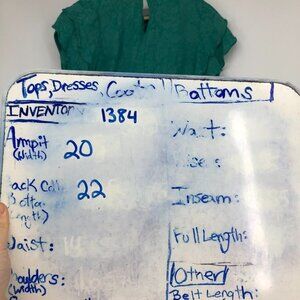 Tops, Dresses, Coats
Bottoms
INVENTORY 1384
Armpit
(Width) 20
ack Coll
22
Botto
ength)
Waist:
houlders:
(Width)
Waist:
Inseam:
Full Length:
Other
Belt Length: